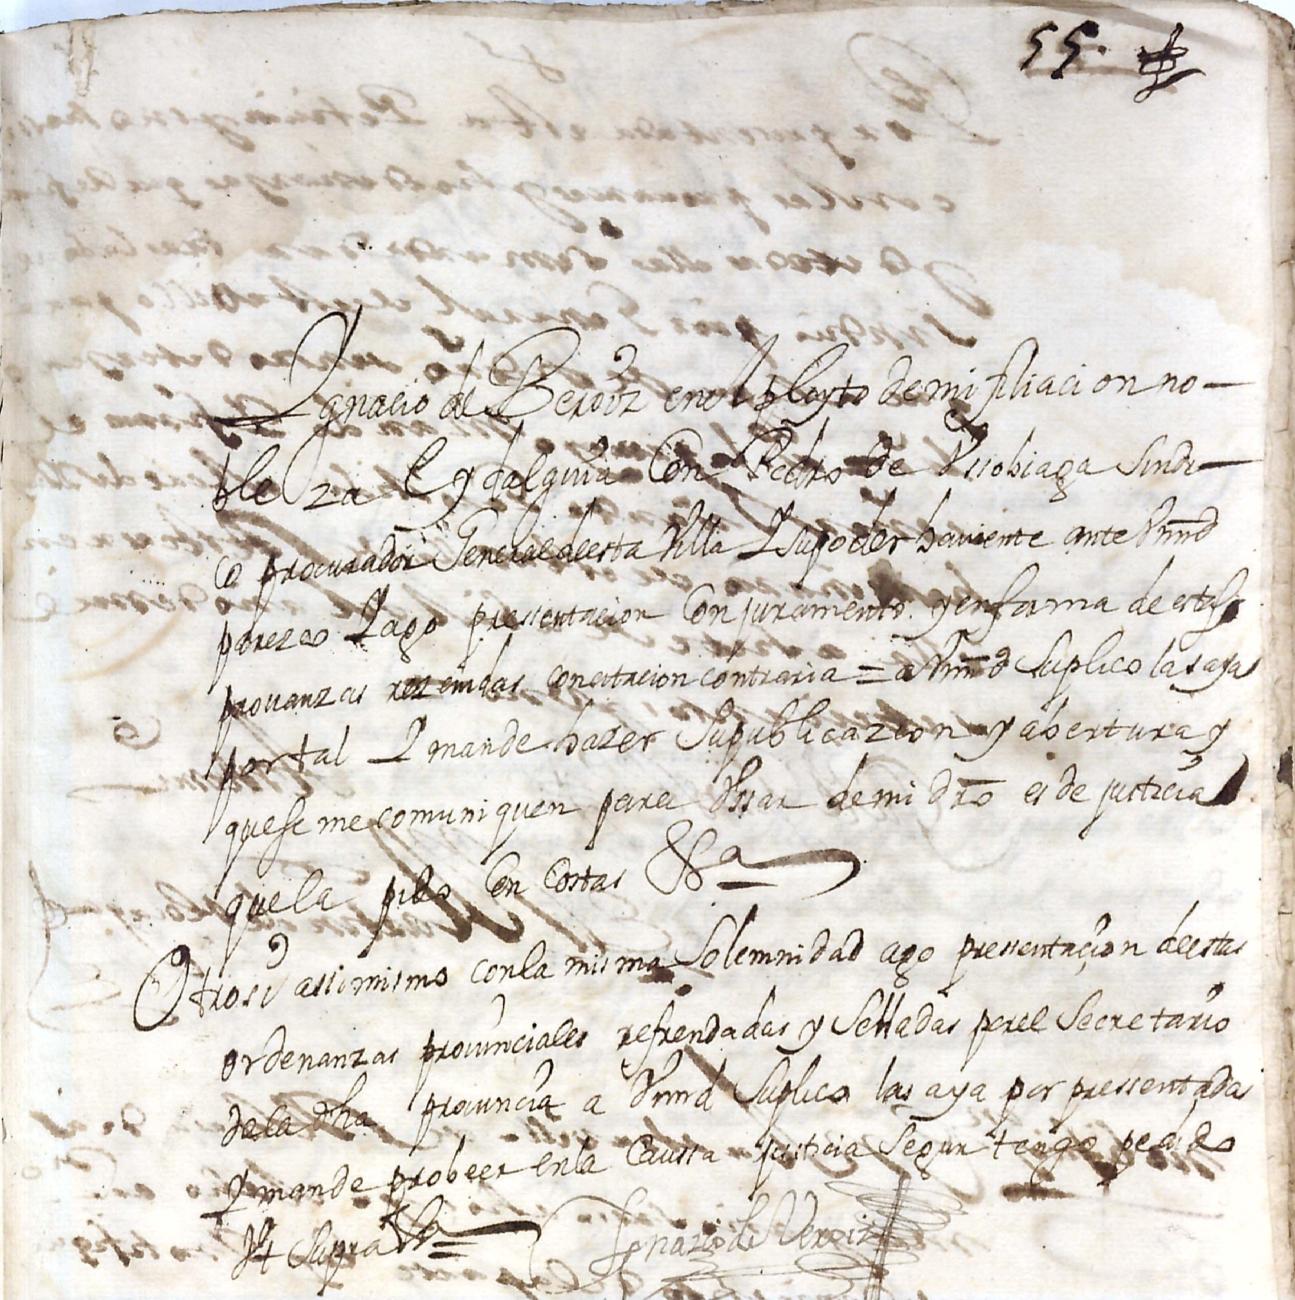 55.
Ygnacio de Beroiz en el pleyto de mi filiacion no-
bleza E ydalguia Con Pedro de Urrobiaga Sindi-
co procurador General de esta Villa Y supoder haviente ante Vmd
parezco Y ago pressentacion Con juramento y en forma de estas
provanzas rezeuidas concitacion contraria = a Vmd Suplico las aya
por tal Y mande hazer Supublicazion y abertura y
que se me comuniquen para Vssar de mi dro es de justicia
que la pido en Costas &a
Otrosi assimismo con la misma Solemnidad ago pressentaçion de estas
ordenanzas provinciales refrendadas y Selladas por el Secretario
de la dha provincia a Vmd Suplico las aya por pressentadas
Y mande probeer en la Caussa justicia Segun tengo pedido
Ut Supra &a
Ignazio de Veroiz